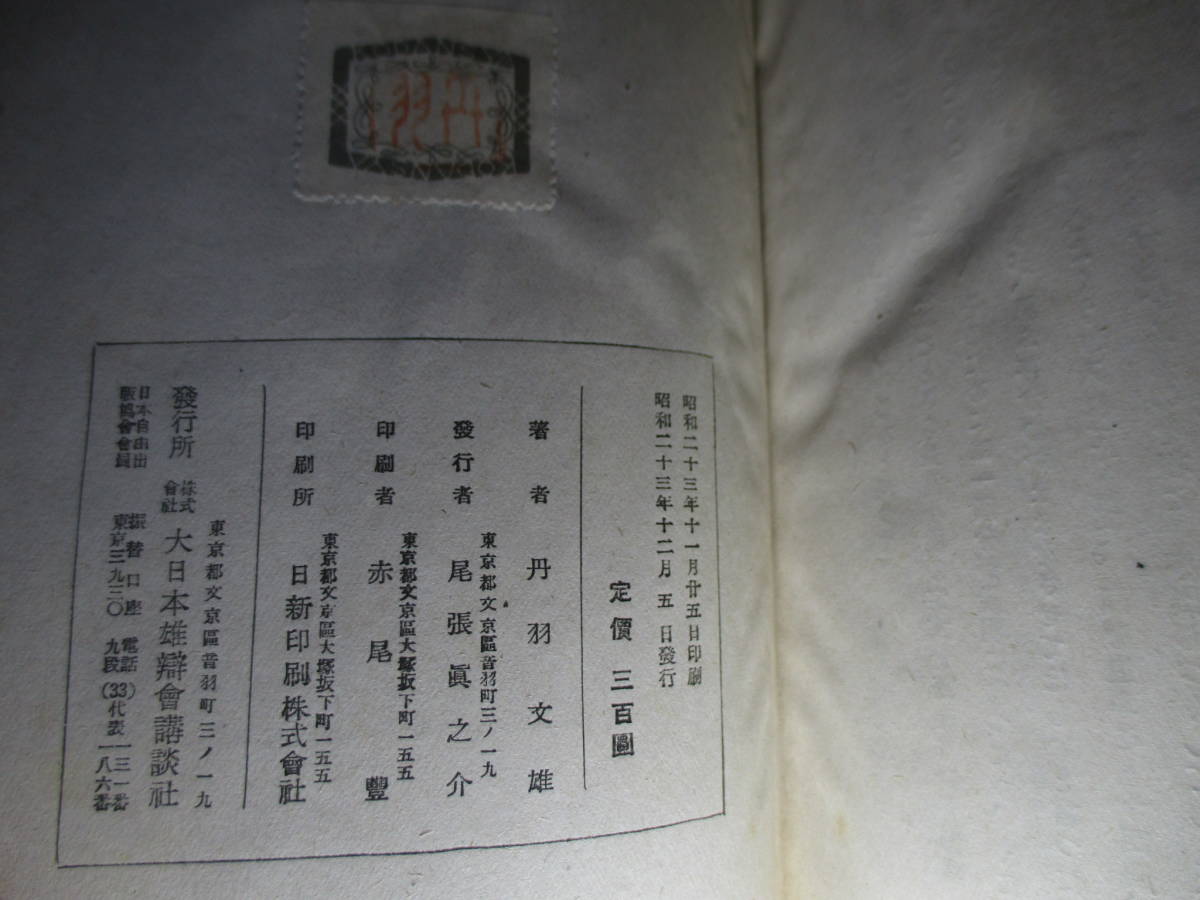 丹羽
昭和二十三年十一月廿五日印刷
昭和二十三年十二月五日發行
定價 三百圓
著者 丹羽文雄
東京都文京區音羽町三ノ一九
發行者 尾張眞之介
東京都文京區大塚坂下町一五五
印刷者 赤尾豐
東京都文京區大塚坂下町一五五
印刷所 日新印刷株式會社
東京都文京區音羽町三ノ一九
發行所 株式會社 大日本雄辯會講談社
日本自由出版協會會員
振替口座 東京三九三〇
電話 九段(33)代表一三一番
一八六番